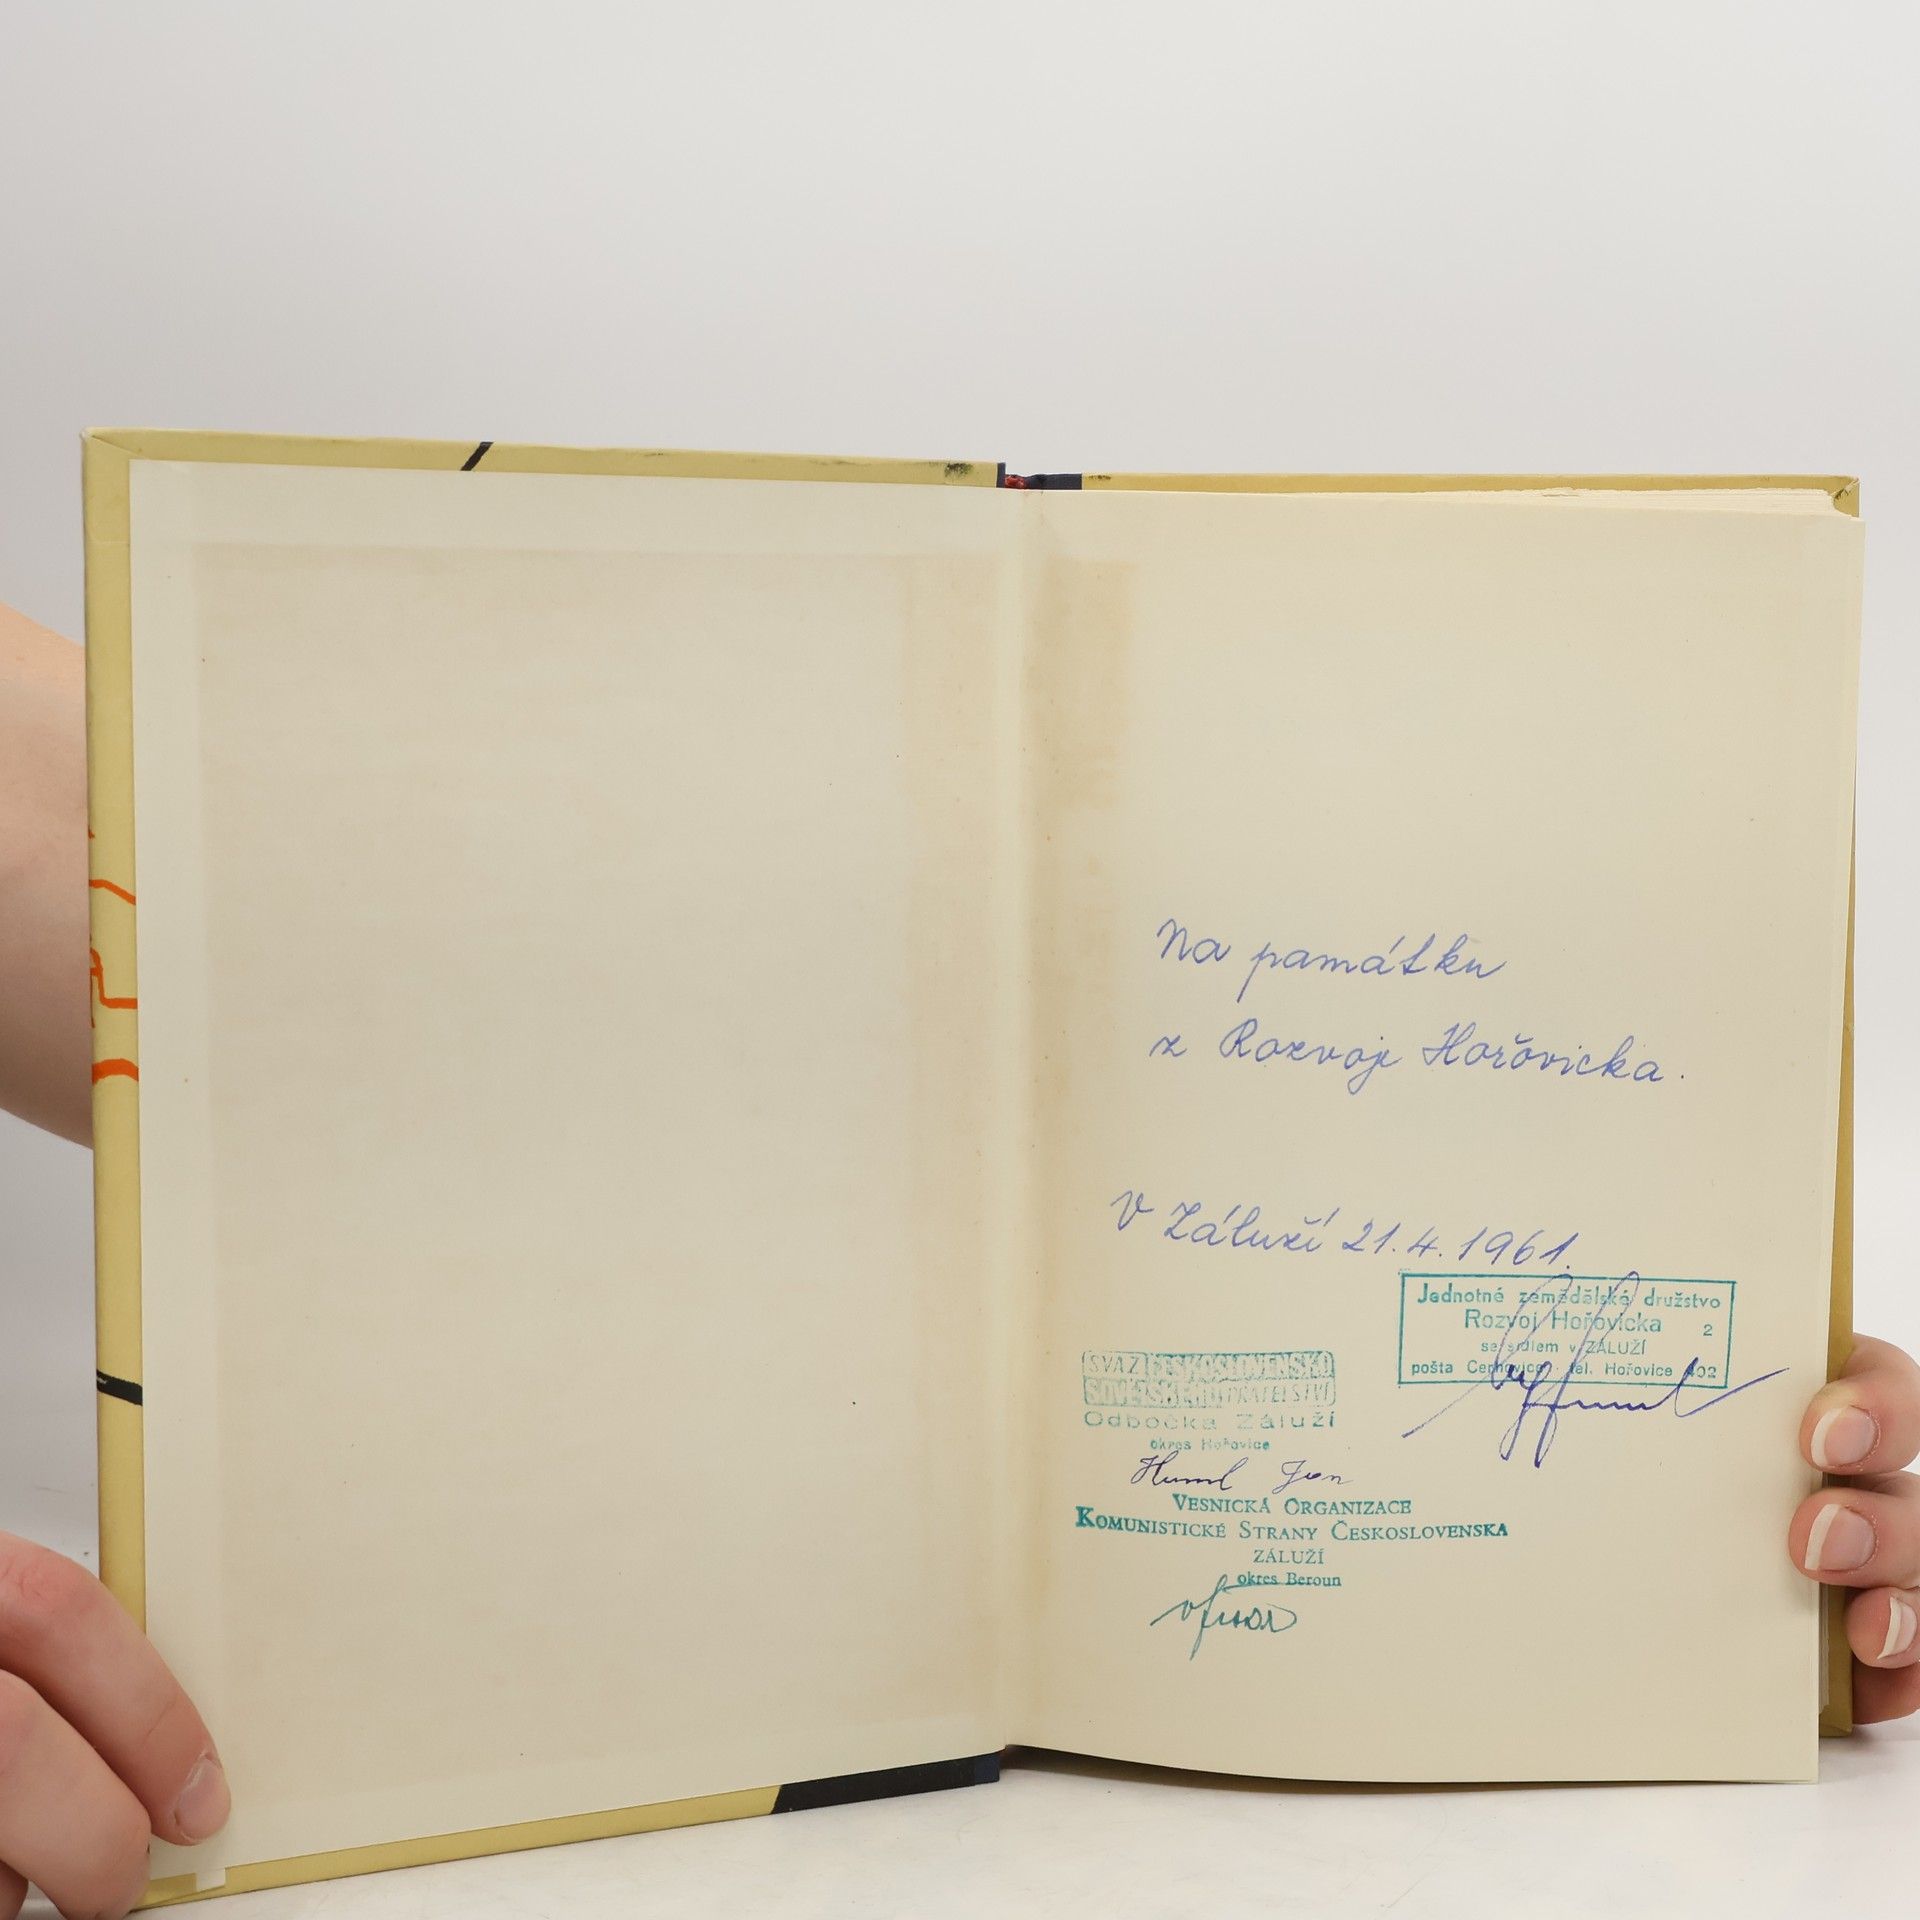 Na památku
z Rozvoje Hořovicka.
V Záluží 21.4.1961.
Jednotné zemědělské družstvo
Rozvoj Hořovicka 2
se sídlem v ZÁLUŽÍ
pošta Cerhovice - tel. Hořovice 402
SVAZ ČESKOSLOVENSKO
SOVĚTSKÉHO PŘÁTELSTVÍ
Odbočka Záluží
okres Hořovice
Huml Jan
VESNICKÁ ORGANIZACE
KOMUNISTICKÉ STRANY ČESKOSLOVENSKA
ZÁLUŽÍ
okres Beroun